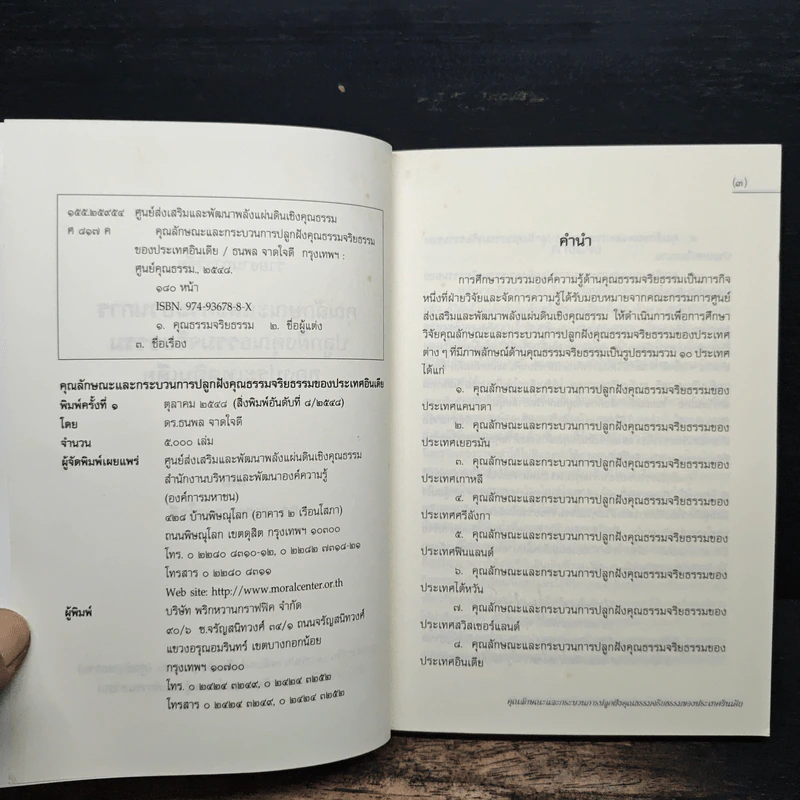 ๑๕๕.๒๕๙๕๔ ศูนย์ส่งเสริมและพัฒนาพลังแผ่นดินเชิงคุณธรรม
ศ ๘๑๗ ค คุณลักษณะและกระบวนการปลูกฝังคุณธรรมจริยธรรม
ของประเทศอินเดีย / ธนพล จาดใจดี กรุงเทพฯ :
ศูนย์คุณธรรม., ๒๕๔๘.
๑๘๐ หน้า
ISBN. 974-93678-8-X
๑. คุณธรรมจริยธรรม ๒. ชื่อผู้แต่ง
๓. ชื่อเรื่อง
คุณลักษณะและกระบวนการปลูกฝังคุณธรรมจริยธรรมของประเทศอินเดีย
พิมพ์ครั้งที่ ๑ ตุลาคม ๒๕๔๘ (สิ่งพิมพ์อันดับที่ ๘/๒๕๔๘)
โดย ดร.ธนพล จาดใจดี
จำนวน ๕,๐๐๐ เล่ม
ผู้จัดพิมพ์เผยแพร่ ศูนย์ส่งเสริมและพัฒนาพลังแผ่นดินเชิงคุณธรรม
สำนักงานบริหารและพัฒนาองค์ความรู้
(องค์การมหาชน)
๔๒๘ บ้านพิษณุโลก (อาคาร ๒ เรือนโสภา)
ถนนพิษณุโลก เขตดุสิต กรุงเทพฯ ๑๐๓๐๐
โทร. ๐ ๒๒๘๐ ๘๓๑๐-๑๒, ๐ ๒๒๘๒ ๗๓๑๘-๒๑
โทรสาร ๐ ๒๒๘๐ ๘๓๑๑
Web site: http://www.moralcenter.or.th
ผู้พิมพ์ บริษัท พริกหวานกราฟฟิค จำกัด
๙๐/๖ ซ.จรัญสนิทวงศ์ ๓๔/๑ ถนนจรัญสนิทวงศ์
แขวงอรุณอมรินทร์ เขตบางกอกน้อย
กรุงเทพฯ ๑๐๗๐๐
โทร. ๐ ๒๔๒๔ ๓๒๔๙, ๐ ๒๔๒๔ ๓๒๕๒
โทรสาร ๐ ๒๔๒๔ ๓๒๔๙, ๐ ๒๔๒๔ ๓๒๕๒
(๓)
คำนำ
การศึกษารวบรวมองค์ความรู้ด้านคุณธรรมจริยธรรมเป็นภารกิจ
หนึ่งที่ฝ่ายวิจัยและจัดการความรู้ได้รับมอบหมายจากคณะกรรมการศูนย์
ส่งเสริมและพัฒนาพลังแผ่นดินเชิงคุณธรรม ให้ดำเนินการเพื่อการศึกษา
วิจัยคุณลักษณะและกระบวนการปลูกฝังคุณธรรมจริยธรรมของประเทศ
ต่าง ๆ ที่มีภาพลักษณ์ด้านคุณธรรมจริยธรรมเป็นรูปธรรมรวม ๑๐ ประเทศ
ได้แก่
๑. คุณลักษณะและกระบวนการปลูกฝังคุณธรรมจริยธรรมของ
ประเทศแคนาดา
๒. คุณลักษณะและกระบวนการปลูกฝังคุณธรรมจริยธรรมของ
ประเทศเยอรมัน
๓. คุณลักษณะและกระบวนการปลูกฝังคุณธรรมจริยธรรมของ
ประเทศเกาหลี
๔. คุณลักษณะและกระบวนการปลูกฝังคุณธรรมจริยธรรมของ
ประเทศศรีลังกา
๕. คุณลักษณะและกระบวนการปลูกฝังคุณธรรมจริยธรรมของ
ประเทศฟินแลนด์
๖. คุณลักษณะและกระบวนการปลูกฝังคุณธรรมจริยธรรมของ
ประเทศไต้หวัน
๗. คุณลักษณะและกระบวนการปลูกฝังคุณธรรมจริยธรรมของ
ประเทศสวิสเซอร์แลนด์
๘. คุณลักษณะและกระบวนการปลูกฝังคุณธรรมจริยธรรมของ
ประเทศอินเดีย
คุณลักษณะและกระบวนการปลูกฝังคุณธรรมจริยธรรมของประเทศอินเดีย